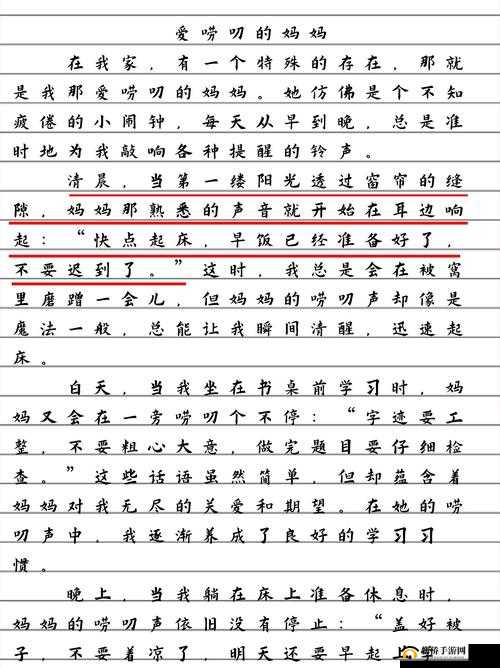 爱唠叨的妈妈
在我家，有一个特殊的存在，那就
是我那爱唠叨的妈妈。她仿佛是个不知
疲倦的小闹钟，每天从早到晚，总是准
时地为我敲响各种提醒的铃声。
清晨，当第一缕阳光透过窗帘的缝
隙，妈妈那熟悉的声音就开始在耳边响
起：“快点起床，早饭已经准备好了，
不要迟到了。”这时，我总是会在被窝
里磨蹭一会儿，但妈妈的唠叨声却像是
魔法一般，总能让我瞬间清醒，迅速起
床。
白天，当我坐在书桌前学习时，妈
妈又会在一旁唠叨个不停：“字迹要工
整，不要粗心大意，做完题目要仔细检
查。”这些话语虽然简单，但却蕴含着
妈妈对我无尽的关爱和期望。在她的唠
叨声中，我逐渐养成了良好的学习习
惯。
晚上，当我躺在床上准备休息时，
妈妈的唠叨声依旧没有停止：“盖好被
子，不要着凉了，明天还要早起上
手游网